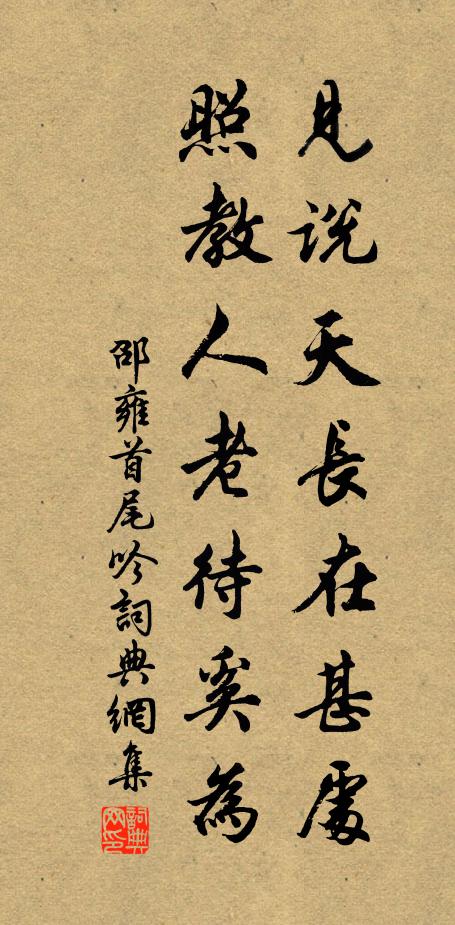 見說天長在甚處
照教人老待奚為
邵雍首尾吟詞典網集
詞典網印